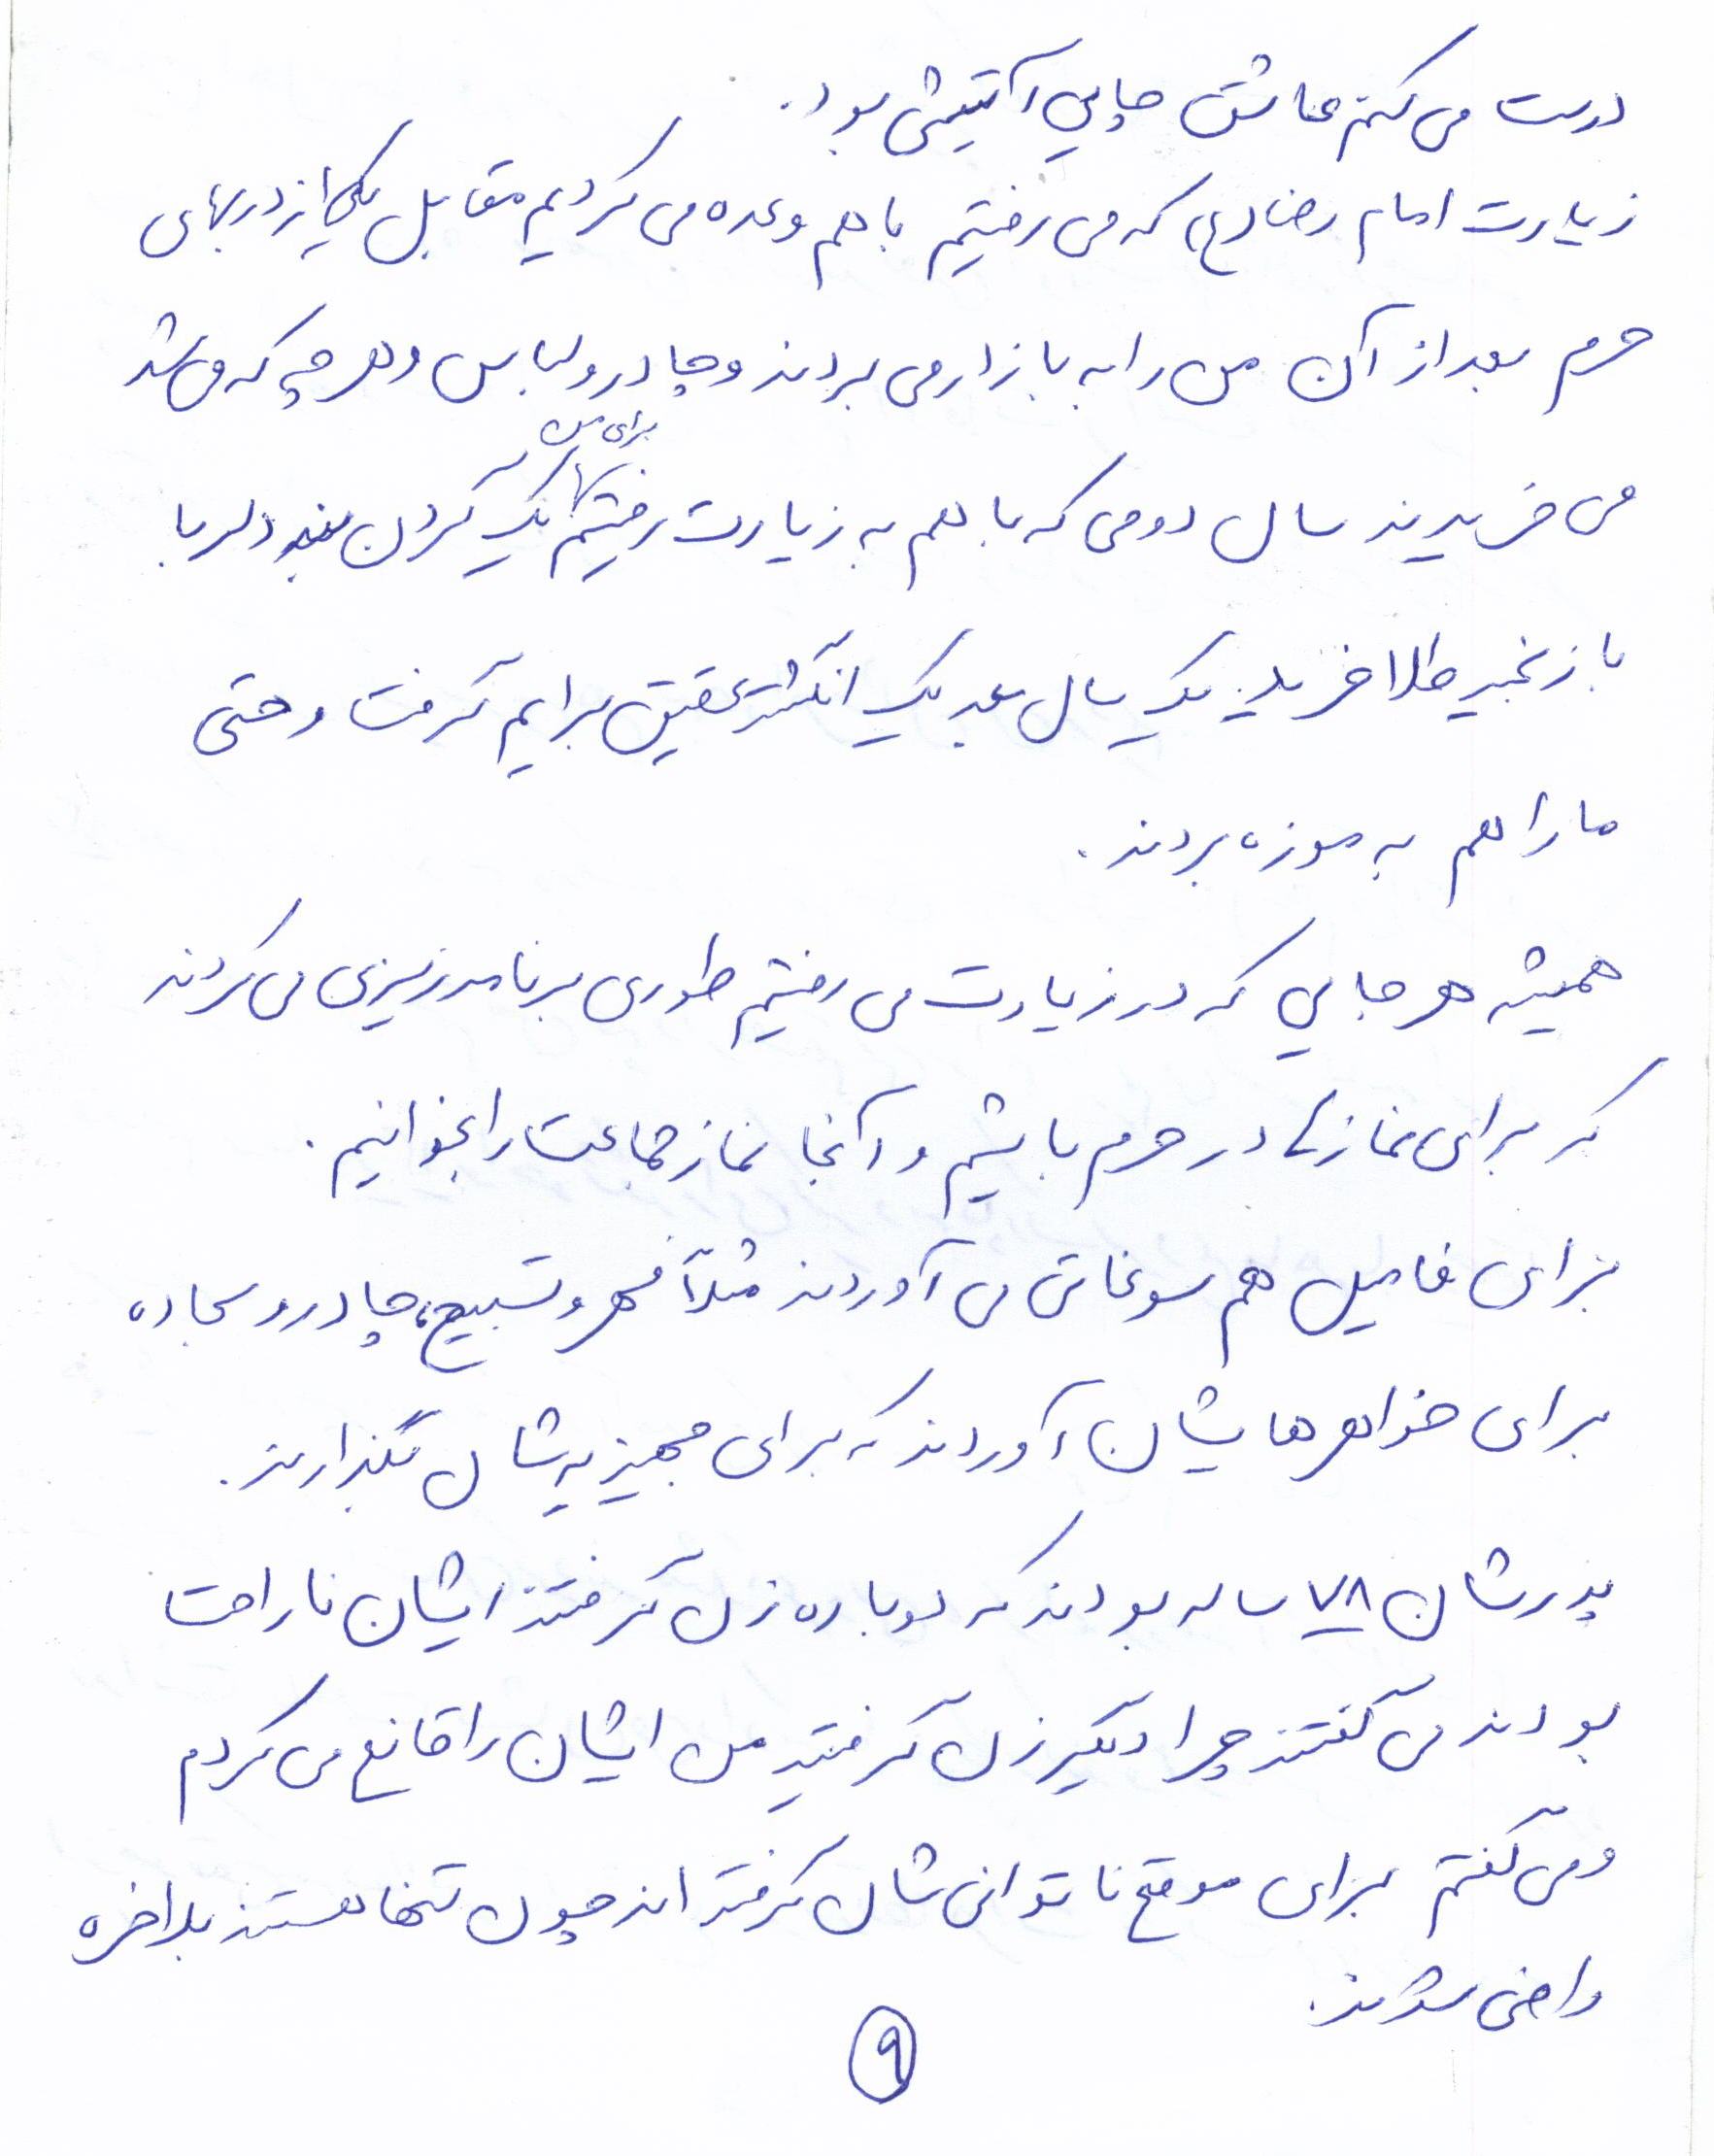 درست می کنم عاشق چایی آتیشی بود.
زیارت امام رضا (ع) که می رفتیم با هم وعده می کردیم مقابل یکی از دربهای
حرم بعد از آن من را به بازار می بردند و چادر و لباس و هر چه که می شد
برای من
می خریدند سال دومی که با هم به زیارت رفتیم یک گردن بند دلربا
با زنجیر طلا خرید. یک سال بعد یک انگشتر عقیق برایم گرفت و حتی
ما را هم به موزه بردند.
همیشه هر جایی که در زیارت می رفتیم طوری برنامه ریزی می کردند
که برای نماز در حرم باشیم و آنجا نماز جماعت را بخوانیم.
برای فامیل هم سوغاتی می آوردند مثلاً مهر و تسبیح، چادر و سجاده
برای خواهرهایشان آوردند که برای جهیزیه شان بگذارند.
پدرشان ۷۸ ساله بودند که دوباره زن گرفتند ایشان ناراحت
بودند می گفتند چرا دیگر زن گرفتید من ایشان را قانع می کردم
و می گفتم برای موقع ناتوانی شان گرفته اند چون تنها هستند بلاخره
راضی شدند.
۹